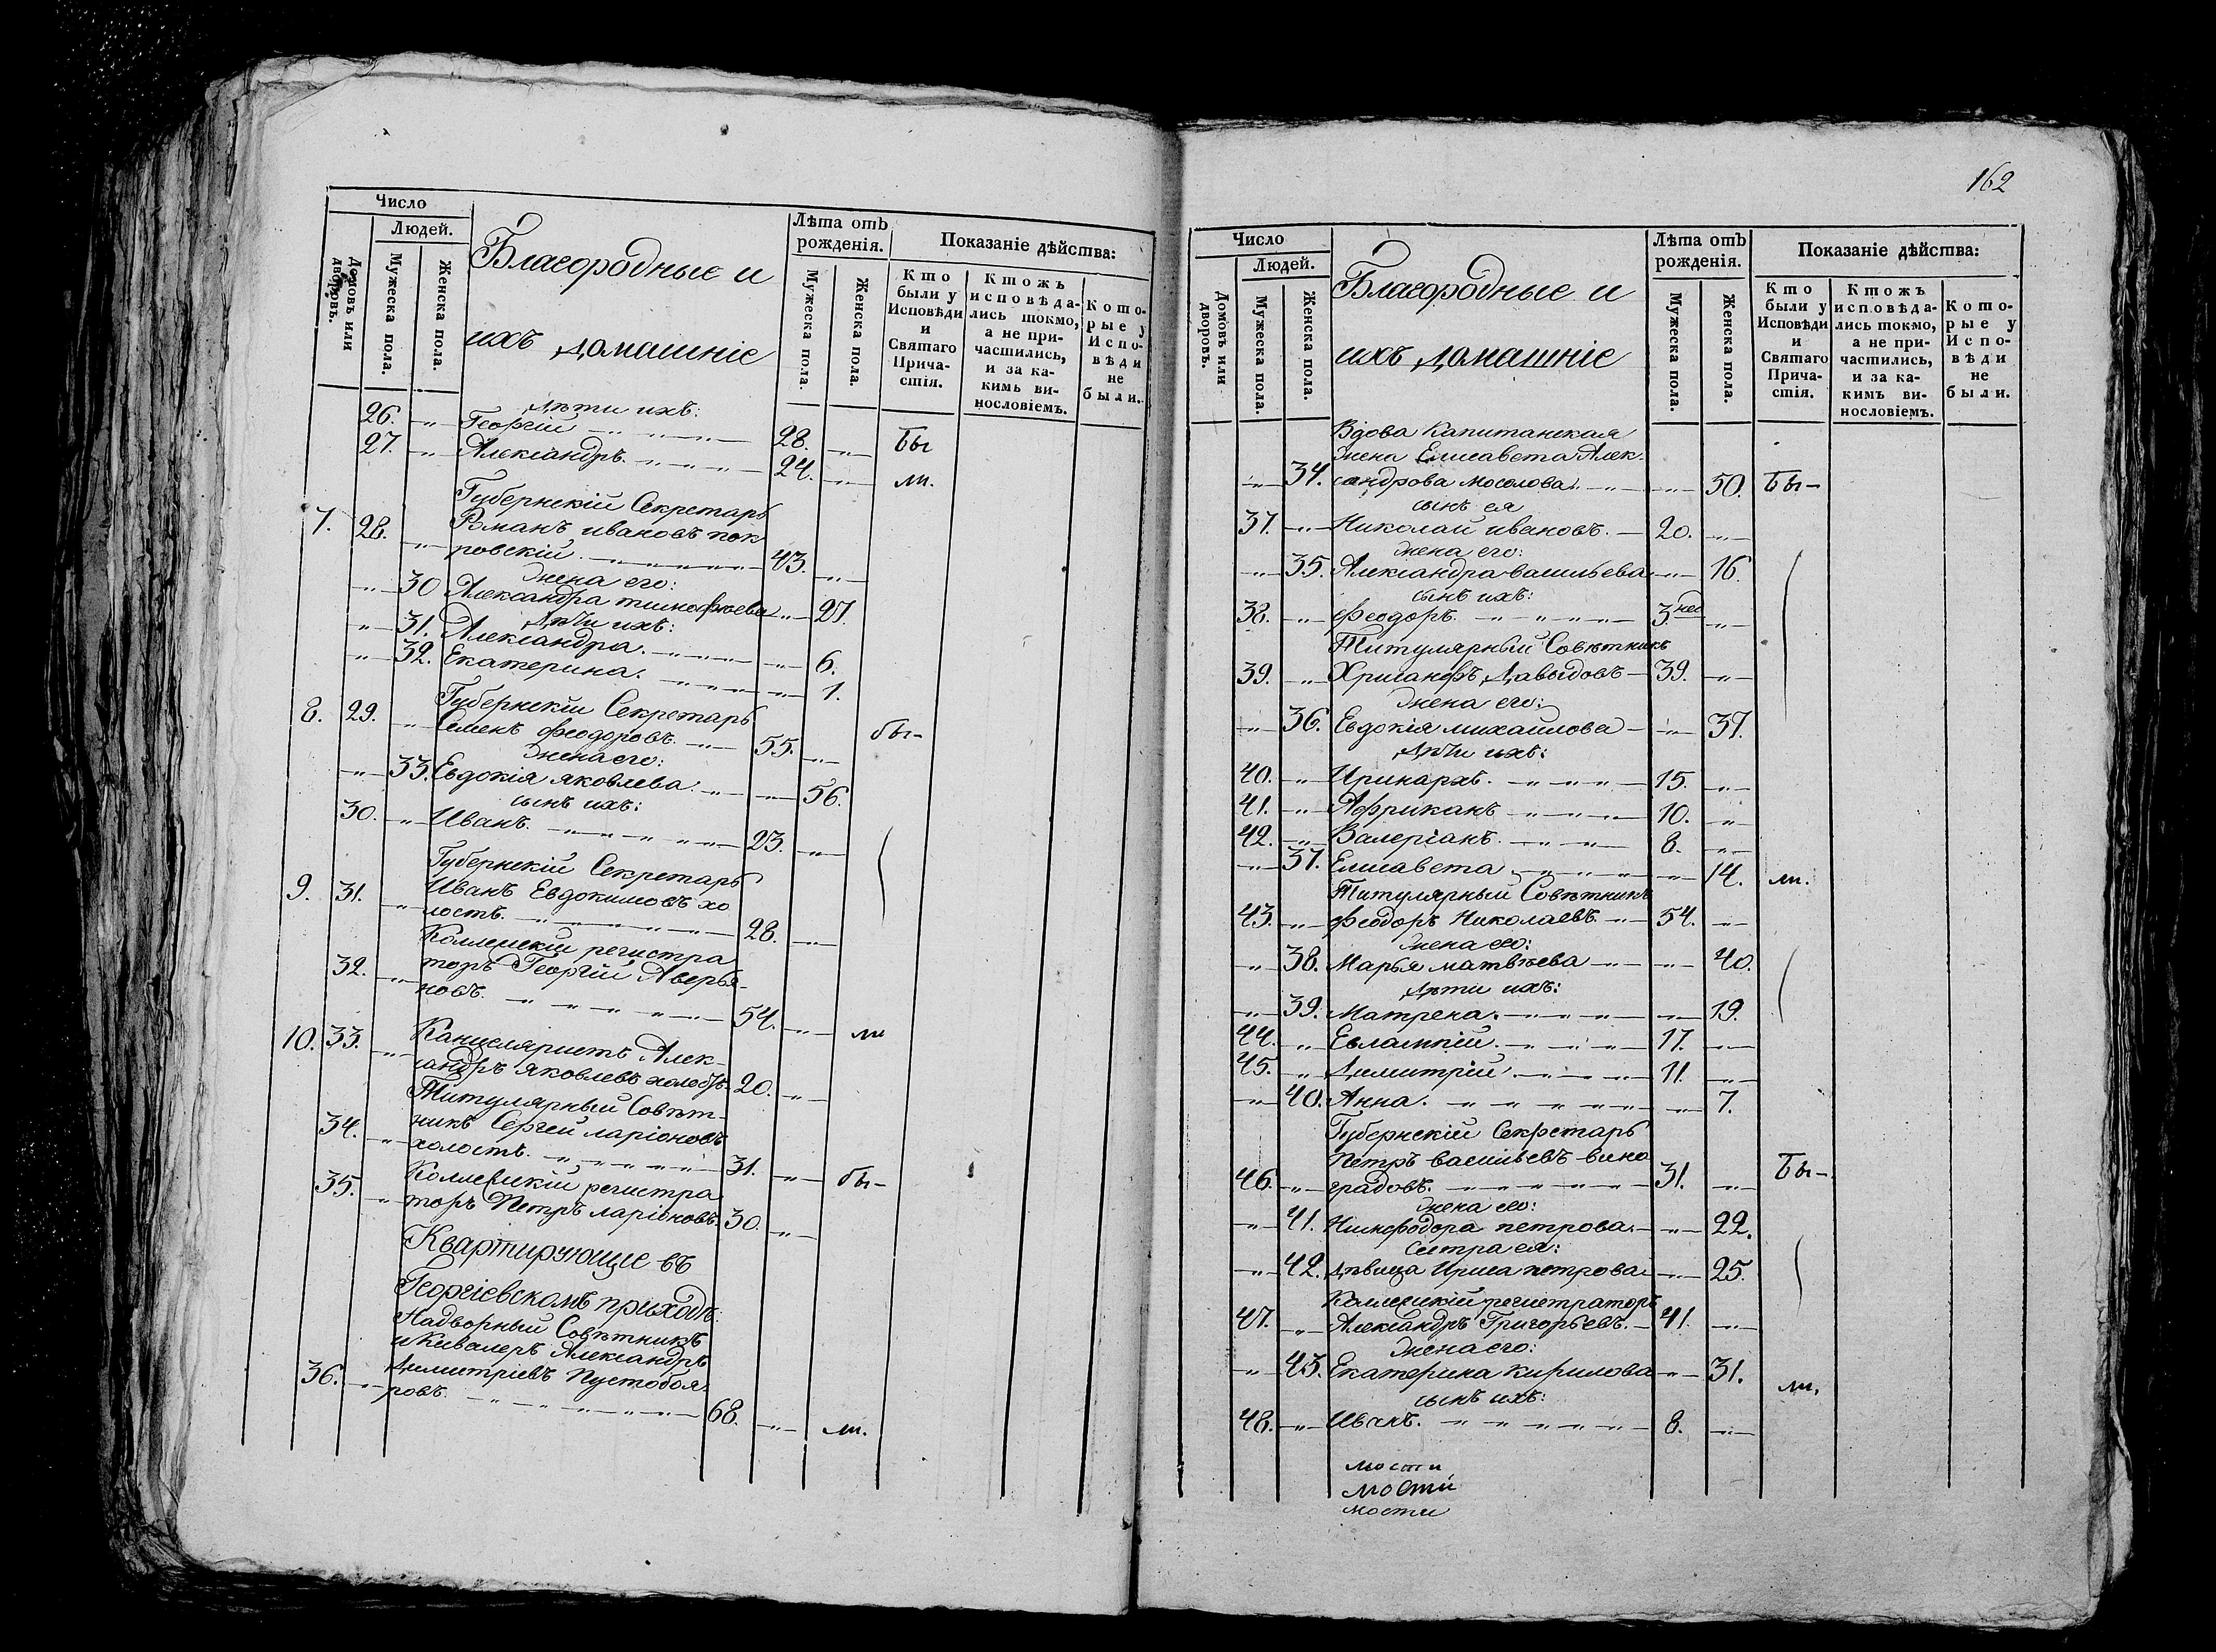 Число
Людей.
Домовъ или дворовъ.
Мужеска пола.
Женска пола.
Благородные и
ихъ домашніе
Лѣта отъ рожденія.
Мужеска пола.
Женска пола.
Показаніе дѣйства:
Кто были у Исповѣди и Святаго Причастія.
Ктожъ исповѣдались токмо, а не причастились, и за какимъ винословіемъ.
Которые у Исповѣди не были.
дѣти ихъ:
26. „ Георгій 28. „ Бы
27. „ Александръ. 24. „ ли.
Губернскій Секретарь
7. 28. Романъ ивановъ пок
„ ровскій. 43. „
Жена его:
„ 30 Александра тимофѣева „ 27.
дѣти ихъ:
„ 31. Александра. „ 6.
„ 32. Екатерина. „ 1.
Губернскій Секретарь
8. 29. „ Семенъ феодоровъ. 55. „ бы-
Жена его:
„ 33. Евдокія яковлева. „ 56.
сынъ ихъ:
30. „ Иванъ. 23. „
Губернскій Секретарь
9. 31. „ Иванъ Евдокимовъ хо
лостъ. 28. „
Коллежскій регистра
32. „ торъ Георгій Аверья-
новъ. 54. „ ли
10. 33. „ Канцеляристъ Алек-
сандръ яковлевъ холостъ 20. „
Титулярный Совѣт-
34. „ никъ Сергей ларіоновъ
холостъ. 31. „ бы-
Коллежскій регистра
35. „ торъ Петръ ларіоновъ. 30. „
Квартирующие въ
Георгіевскомъ приходѣ:
Надворный Совѣтникъ
и Кивалеръ Александръ
36. „ Димитріевъ Пустобоя-
ровъ. 68. „ ли.
162
Число
Людей.
Домовъ или дворовъ.
Мужеска пола.
Женска пола.
Благородные и
ихъ домашніе
Лѣта отъ рожденія.
Мужеска пола.
Женска пола.
Показаніе дѣйства:
Кто были у Исповѣди и Святаго Причастія.
Ктожъ исповѣдались токмо, а не причастились, и за какимъ винословіемъ.
Которые у Исповѣди не были.
Вдова Капитанская
Жена Елисавета Алек-
„ 34. сандрова Мосолова. „ 50. Бы-
сынъ ея
37. „ Николай ивановъ. 20. „
Жена его:
„ 35. Александра васильева „ 16.
сынъ ихъ:
38. „ Феодоръ. 3. нед „
Титулярный Совѣтникъ
39. „ Хрисанфъ Давыдовъ 39. „
Жена его:
„ 36. Евдокія михаилова „ 37.
дѣти ихъ:
40. „ Иринархъ. 15. „
41. „ Африканъ 10. „
42. „ Валеріанъ. 8. „
„ 37. Елисавета „ 14. ли.
Титулярный Совѣтникъ
43. „ Феодоръ Николаевъ. 54. „
Жена его:
„ 38. Марья матвѣева „ 40.
дѣти ихъ:
„ 39. Матрена. „ 19.
44. „ Евлампій. 17. „
45. „ Димитрій. 11. „
„ 40. Анна. „ 7.
Губернскій Секретарь
Петръ васильевъ вино
46. „ градовъ. 31. „ Бы-
Жена его:
„ 41. Нимфодора петрова. „ 22.
Систра ея:
„ 42. дѣвица Ириса петрова „ 25.
Коллежскій регистраторъ
47. „ Александръ Григорьевъ. 41. „
Жена его:
„ 43. Екатерина кирилова „ 31. ли.
сынъ ихъ:
48. „ Иванъ. 8. „
мости
мости
мости